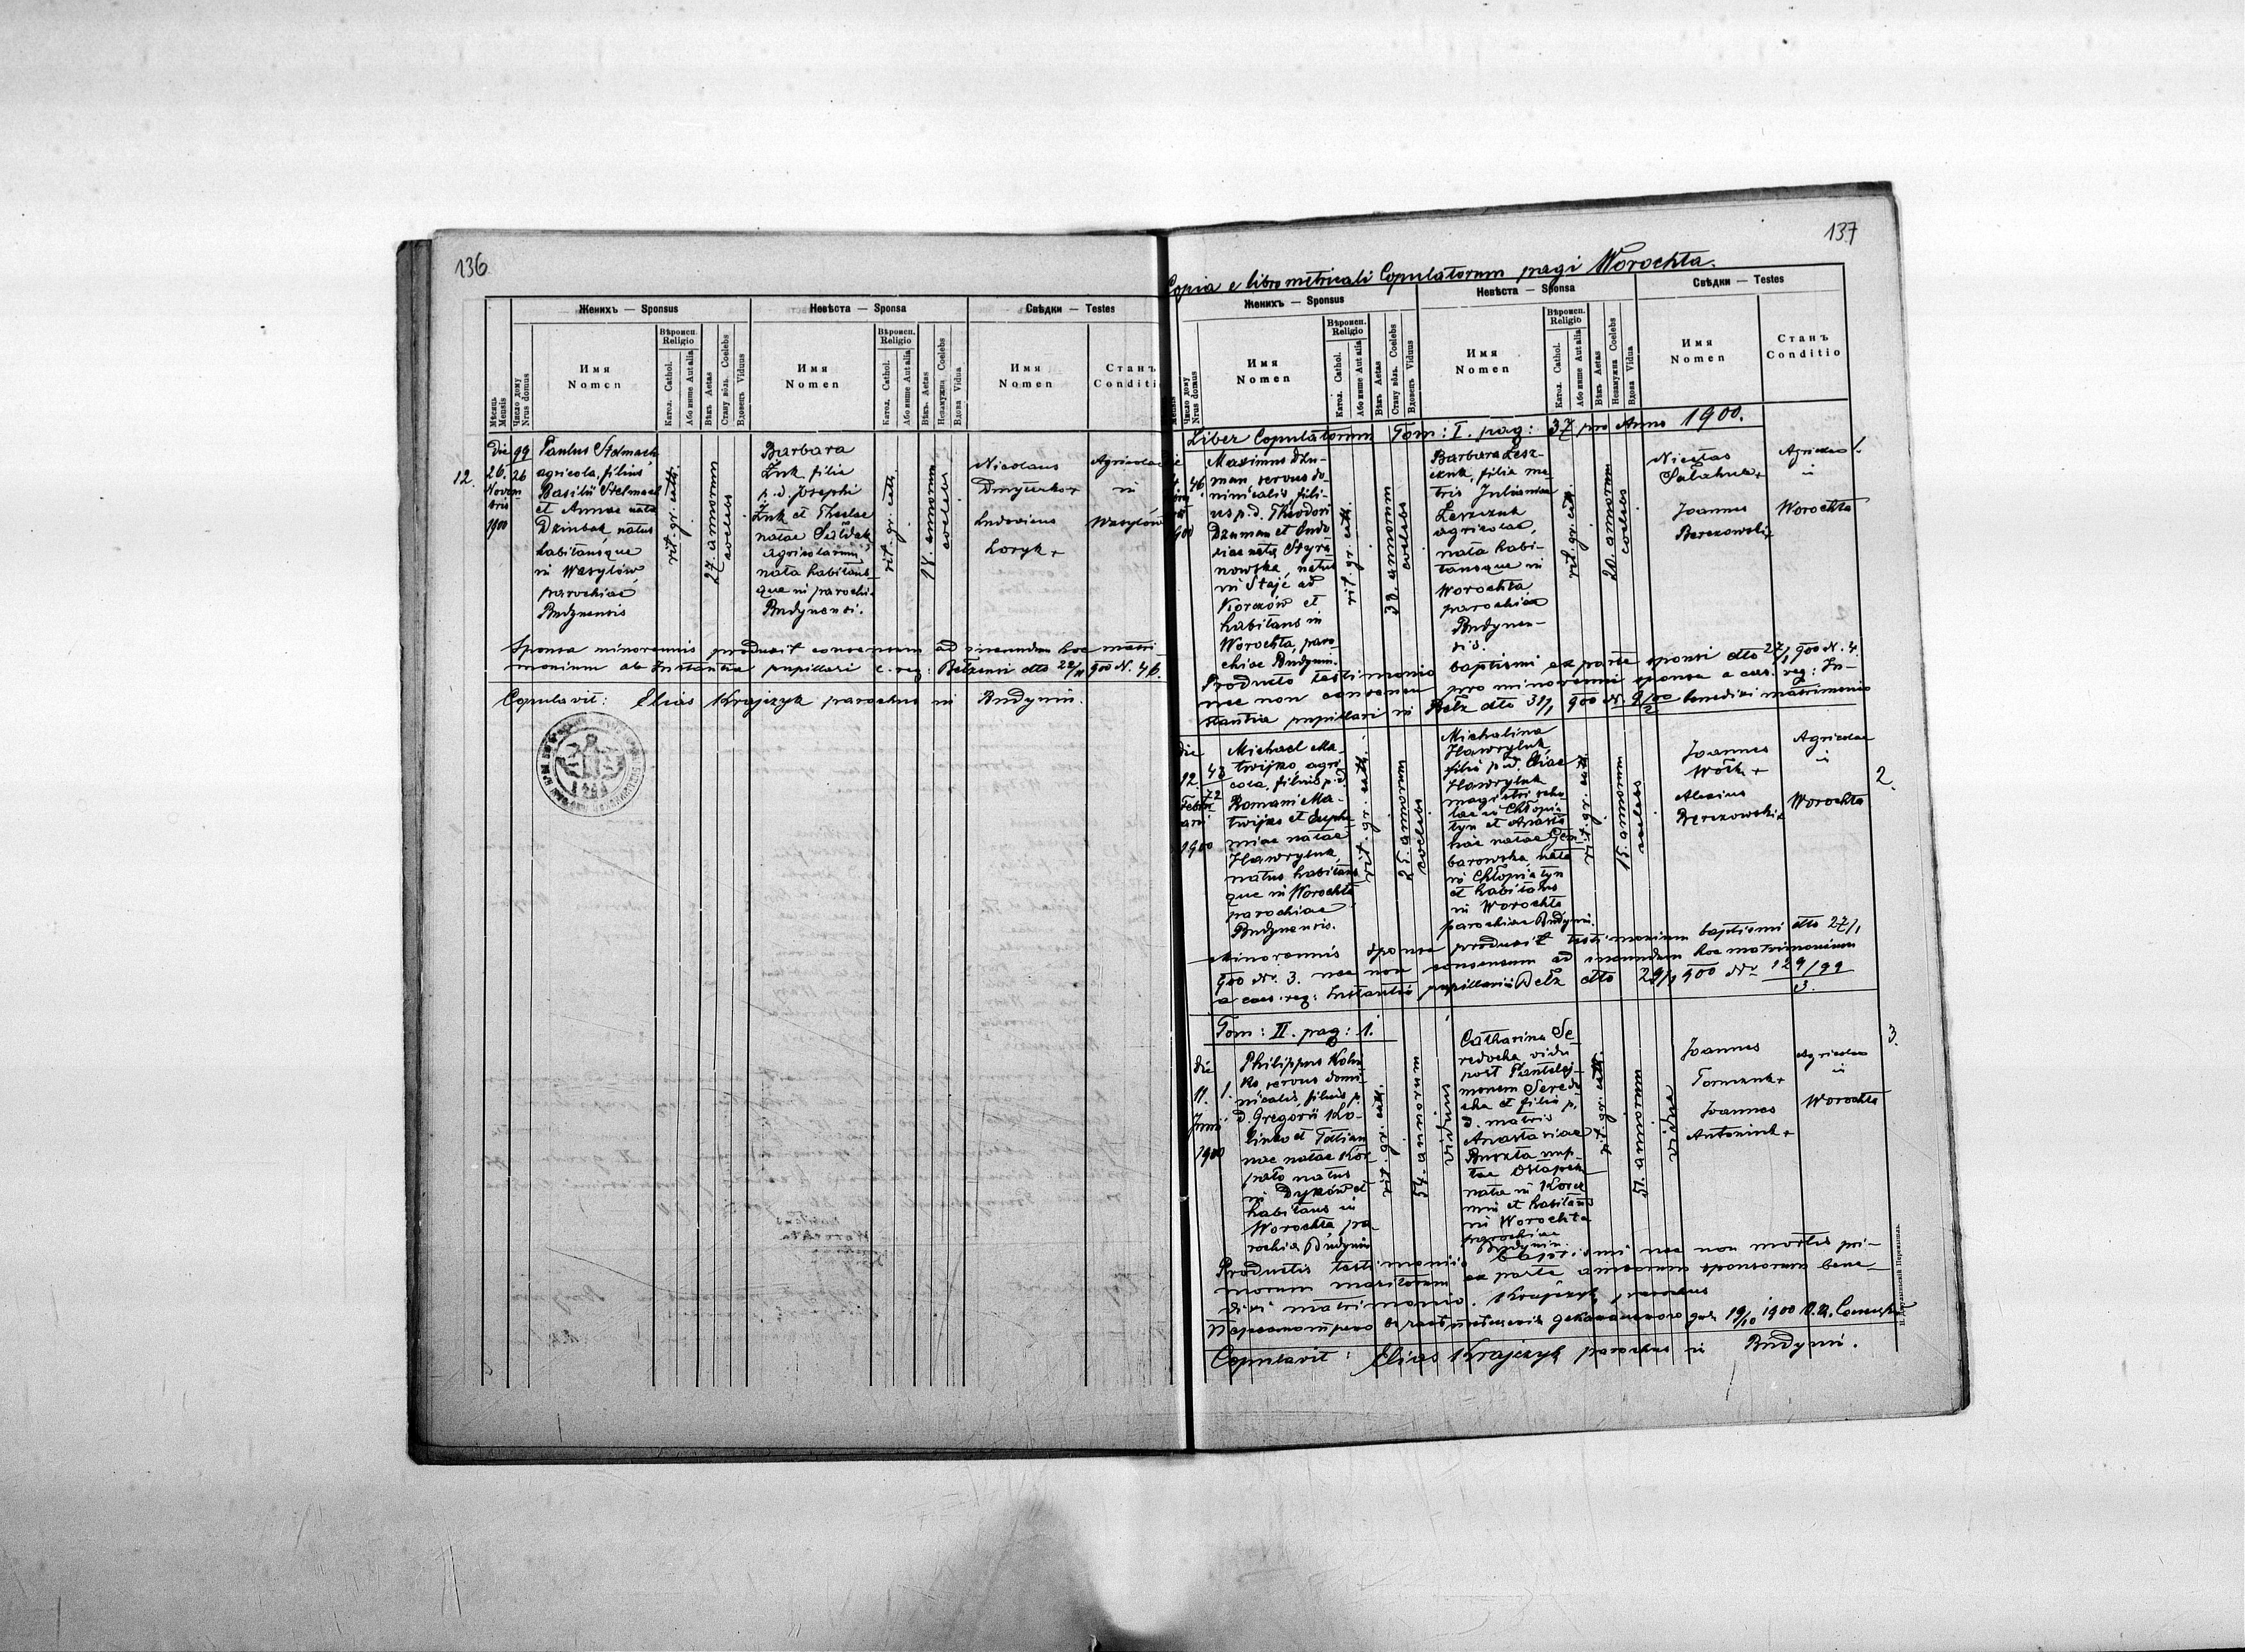 136
Женихъ — Sponsus
Невѣста — Sponsa
Свѣдки — Testes
Мѣсяць Mensis
Число дому Nrus domus
Имя Nomen
Вѣроисп. Religio
Катол. Cathol.
Або инше Aut alia
Вѣкъ Aetas
Стану вôльн. Coelebs
Вдовець Viduus
Имя Nomen
Вѣроисп. Religio
Катол. Cathol.
Або инше Aut alia
Вѣкъ Aetas
Незамужна Coelebs
Вдова Vidua
Имя Nomen
Станъ Conditio
12.
Die 26. Novembris 1900
99
26
Paulus Stelmach
agricola, filius
Basilii Stelmach
et Annae nata
Dziubak, natus
habitansque
in Wasylów
parochiae
Budynensis
rit. gr. cath.
27. annorum
coelebs
Barbara
Żuk filia
p. d. Josephi
Żuk et Theclae
natae
agricolarum
nata habitans-
que in parochi.
Budynensi.
rit. gr. cath.
18. annorum
coelebs
Nicolaus
Dmyterko +
Ludovicus
Loryk +
Agricolae
in
Wasylów
Sponsa minorennis produxit consensum ad ineundum hoc matri-
monium ab Instantia pupillari c. reg: Belzensi dto 22/11 900 N. 46.
Copulavit: Elias Krajczyk parochus in Budynin.
137
Copia e libro metricali Copulatorum pagi Worochta.
Женихъ — Sponsus
Невѣста — Sponsa
Свѣдки — Testes
Число дому Nrus domus
Имя Nomen
Вѣроисп. Religio
Катол. Cathol.
Або инше Aut alia
Вѣкъ Aetas
Стану вôльн. Coelebs
Вдовець Viduus
Имя Nomen
Вѣроисп. Religio
Катол. Cathol.
Або инше Aut alia
Вѣкъ Aetas
Незамужна Coelebs
Вдова Vidua
Имя Nomen
Станъ Conditio
Liber Copulatorum Tom: I. pag: 37 pro Anno 1900.
46
900
Maximus Dzu-
man servus do-
minicalis, fili-
us p. d. Theodori
Dzuman et Eudo-
ciae nata Styra-
nowska, natus
in Staje ad
Korczów et
habitans in
Worochta, paro-
chiae Budynin.
rit. gr. cath.
33. annorum
coelebs
Barbara Lesz-
czuk, filia ma-
tris Julianae
Leszczuk
agricolae
nata habi-
tansque in
Worochta
parochiae
Budynen-
sis.
rit. gr. cath.
20. annorum
coelebs
Nicetas
Salahub +
Joannes
Berezowski +
Agricolae
in
Worochta
1.
Producto testimonio baptismi ex parte sponsi dto 27/1 900 N. 4.
nec non consensu pro minorenni sponsa a caes. reg: In-
stantia pupillari in Bełz dto 31/1 900 N. 9/00 2 benedixi matrimonio
die 12. Februarii 1900
43
72
Michael Ma-
twijko agri-
cola, filius p. d.
Romani Ma-
twijko et Euphe-
miae natae
Hawryluk,
natus habitans
que in Worochta
parochiae
Budynensis.
rit. gr. cath.
25. annorum
coelebs
Michalina
Hawryluk,
filia p. d. Eliae
Hawryluk
magistri scho-
lae in Chłopia-
tyn et Anasta-
siae natae
barowska, nata
in Chłopiatyn
et habitans
in Worochta
parochiae Budynin.
rit. gr. cath.
15. annorum
coelebs
Joannes
Wolk +
Alexius
Berezowski +
Agricolae
in
Worochta
2.
Minorennis sponsa produxit testimonium baptismi dto 27/1
900 Nr. 3. nec non consensum ad ineundum hoc matrimonium
a caes. reg: Instantia pupillari Bełz dto 29/1 900 Nr 129/99 3.
Tom: II. pag: 1.
die 11. Junii 1900
1.
Philippus Kolin-
ko servus domi-
nicalis, filius p.
d. Gregorii Ko-
linko et Tatian-
nae natae Kor-
pało natus
in Dyków et
habitans in
Worochta pa-
rochia Budynin
rit. gr. cath.
54. annorum
viduus
Catharina Se-
redocha vidua
post Pantelej-
monem Seredo-
cha et filia p.
d. matris
Anastasiae
Buszta nup-
tae Ostapek
nata in Korcz-
min et habitans
in Worochta
parochiae
Budynin.
rit. gr. cath.
51. annorum
vidua
Joannes
Tomczuk +
Joannes
Antoniuk +
Agricolae
in
Worochta
3.
Productis testimoniis baptismi nec non mortis pri-
morum maritorum ex parte amborum sponsorum bene-
dixi matrimonio. Krajczyk parochus
19/10 1900
Copulavit: Elias Krajczyk parochus in Budynin.